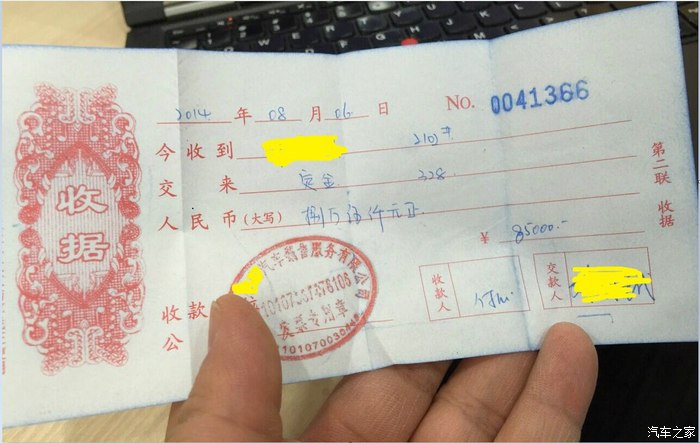 2014 年 08 月 06 日 No. 0041366
今收到
交来 定金 328
人民币(大写) 捌万伍仟元正
¥ 85000.-
收据
第二联 收据
收款
公
汽车销售服务有限公司
发票专用章
收款人
交款人
汽车之家